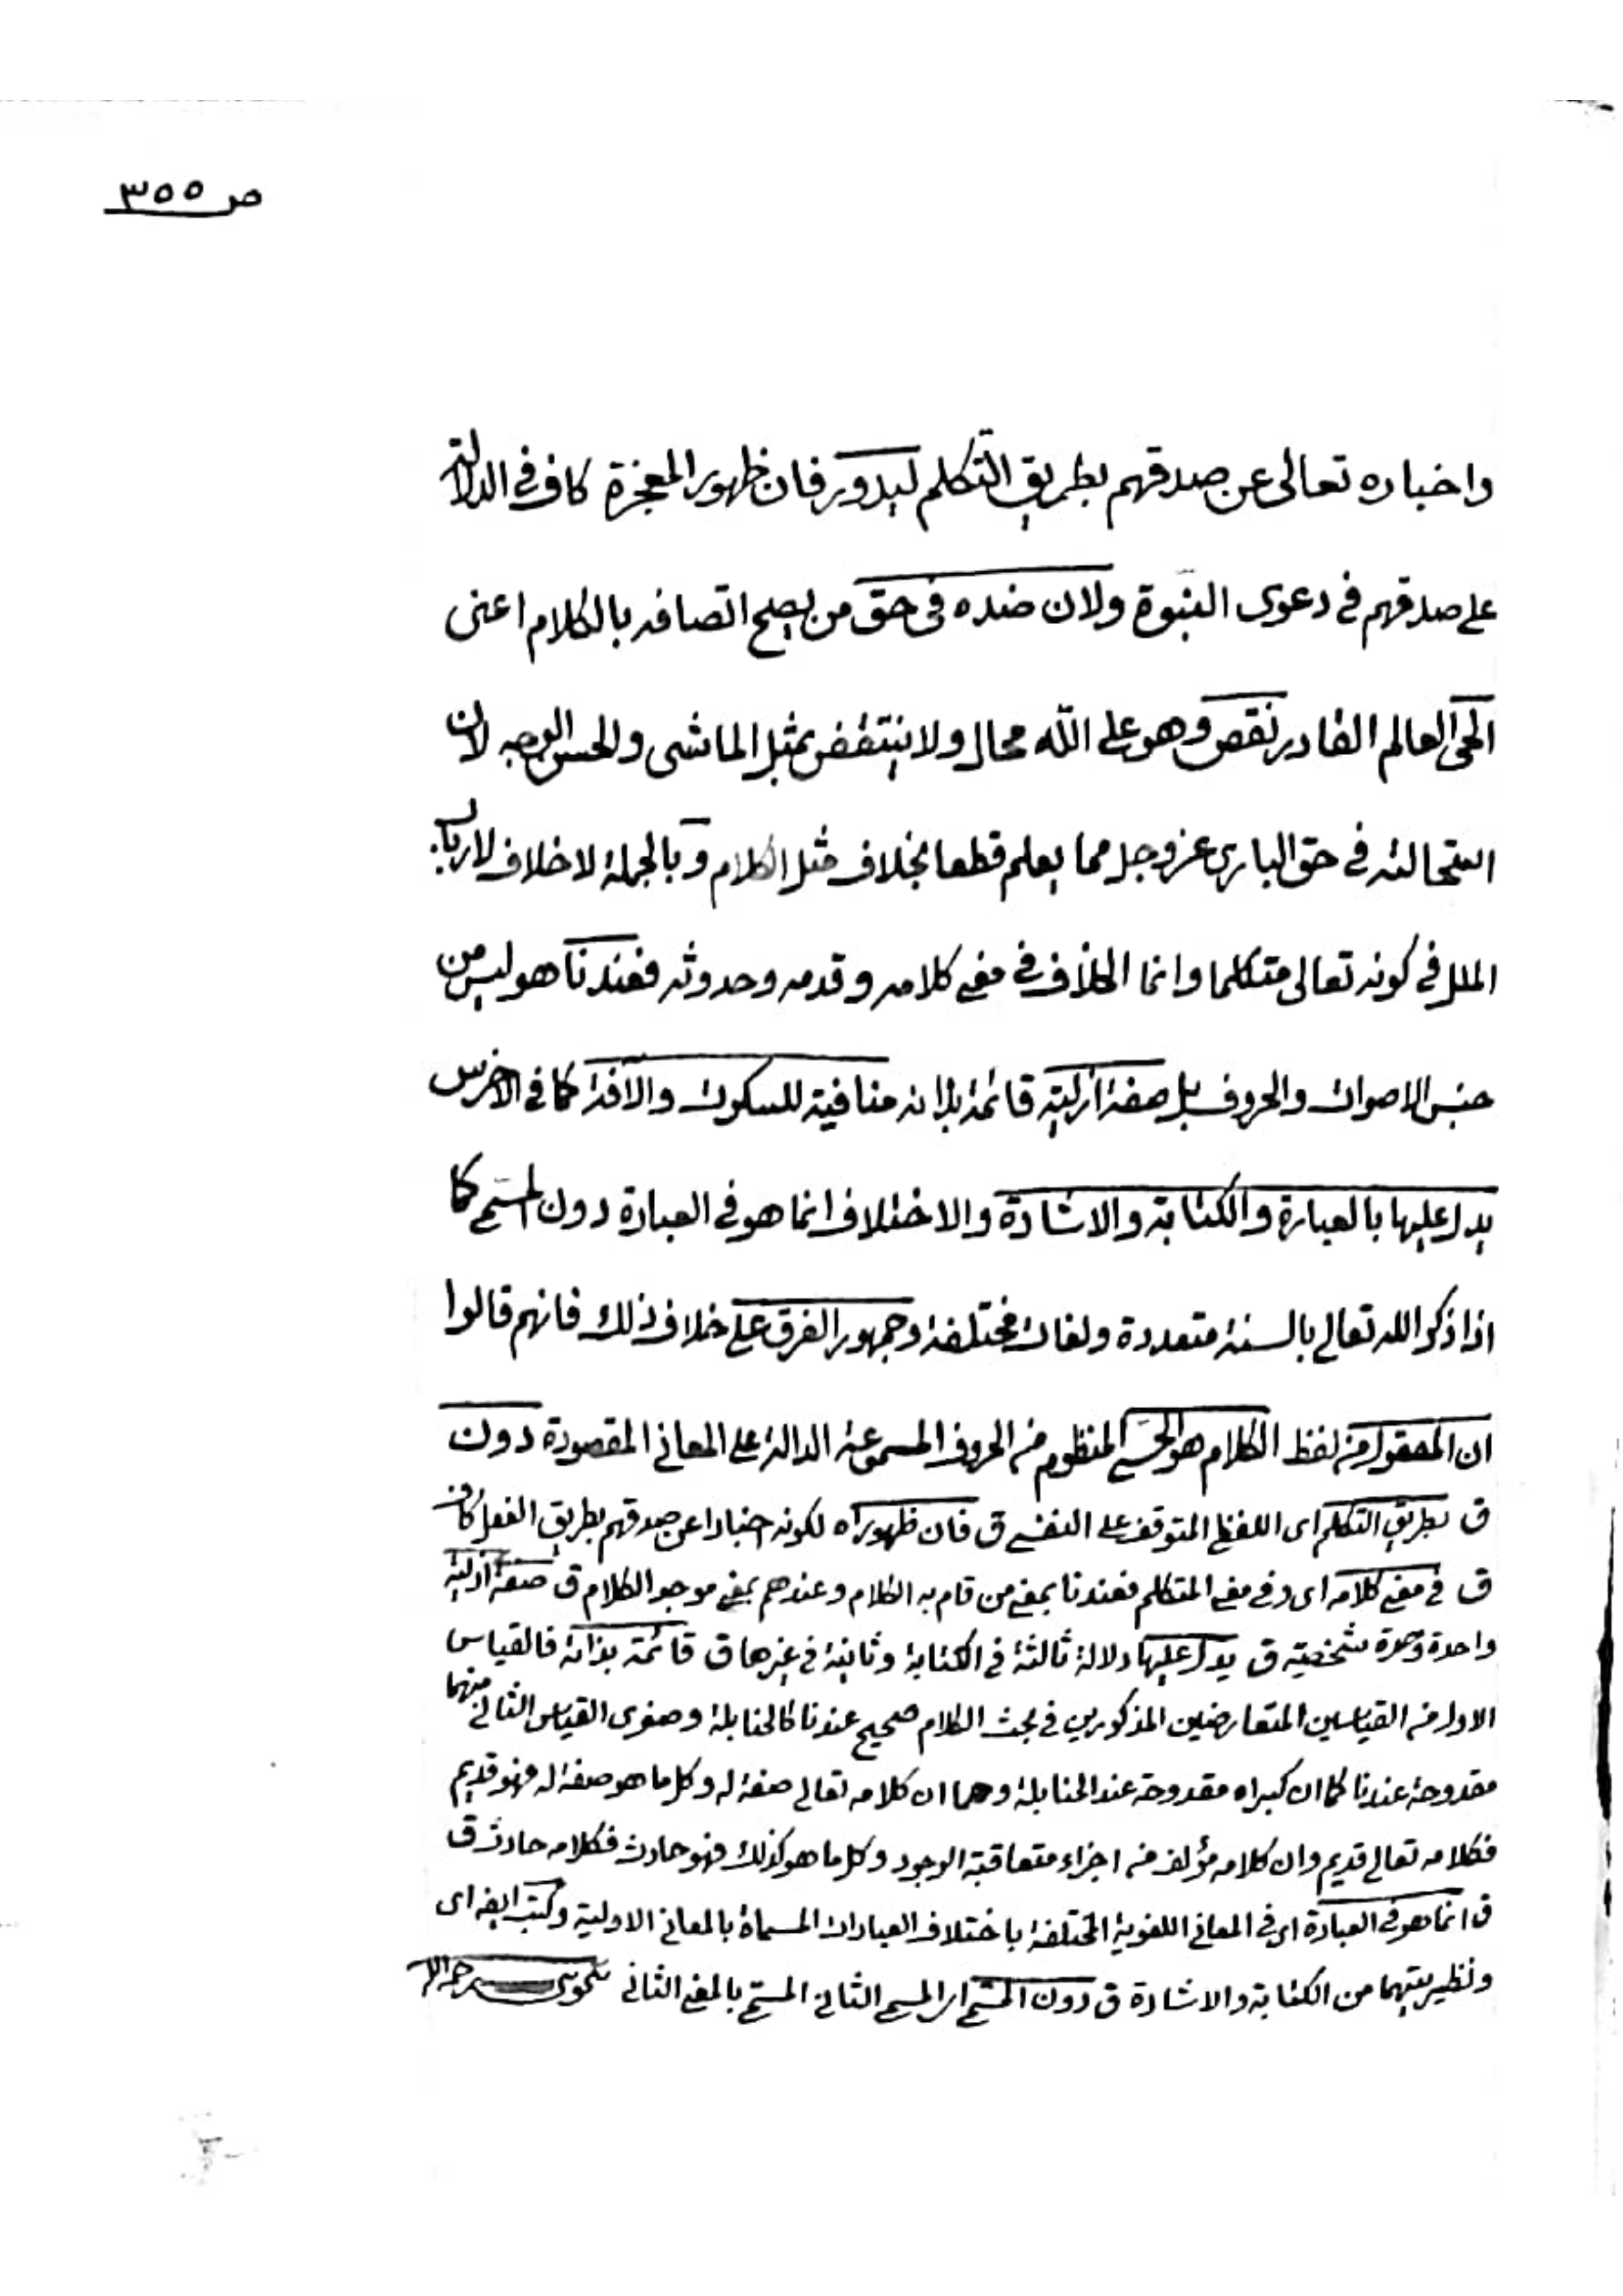 ص ٣٥٥
واخباره تعالى عن صدقهم بطريق التكلم ليدور فان ظهور المعجزة كاف في الدلالة
على صدقهم في دعوى النبوة ولان ضده في حق من يصح اتصافه بالكلام اعنى
الحى العالم القادر نقص وهو على الله محال ولا ينتقض بمثل الماشى والحسن الوجه لان
استحالته في حق البارى عز وجل مما يعلم قطعا بخلاف مثل الكلام وبالجملة لا خلاف لارباب
الملل في كونه تعالى متكلما وانما الخلاف في معنى كلامه وقدمه وحدوثه فعندنا هو ليس من
جنس الاصوات والحروف بل صفة ازلية قائمة بذاته منافية للسكوت والآفة كما في الاخرس
يدل عليها بالعبارة والكتابة والاشارة والاختلاف انما هو في العبارة دون المسمى كما
اذا ذكر الله تعالى بالسنة متعددة ولغات مختلفة وجمهور الفرق على خلاف ذلك فانهم قالوا
ان المعقول من لفظ الكلام هو الحسى المنظوم من الحروف المسموعة الدالة على المعانى المقصودة دون
ق بطريق التكلم اى اللفظى المتوقف على النفسى ق فان ظهور اه لكونه اخبارا عن صدقهم بطريق الفعل كاف
ق في معنى كلامه اى وفى معنى المتكلم فعندنا بمعنى من قام به الكلام وعندهم بمعنى موجد الكلام ق صفة ازلية
واحدة وحدة شخصية ق يدل عليها دلالة ثالثة في الكتابة وثانية في غيرها ق قائمة بذاته فالقياس
الاول من القياسين المتعارضين المذكورين في بحث الكلام صحيح عندنا كالحنابلة وصغرى القياس الثانى منهما
مقدوحة عندنا كما ان كبراه مقدوحة عند الحنابلة وهما ان كلامه تعالى صفة له وكل ما هو صفة له فهو قديم
فكلامه تعالى قديم وان كلامه مؤلف من اجزاء متعاقبة الوجود وكل ما هو كذلك فهو حادث فكلامه حادث ق
ق انما هو في العبارة اى في المعانى اللغوية المختلفة باختلاف العبارات المسماة بالمعانى الاولية وكتب ايضا اى
ونظيريتهما من الكتابة والاشارة ق دون المسمى اى المسمى الثانى المسمى بالمعنى الثانى رحمه الله